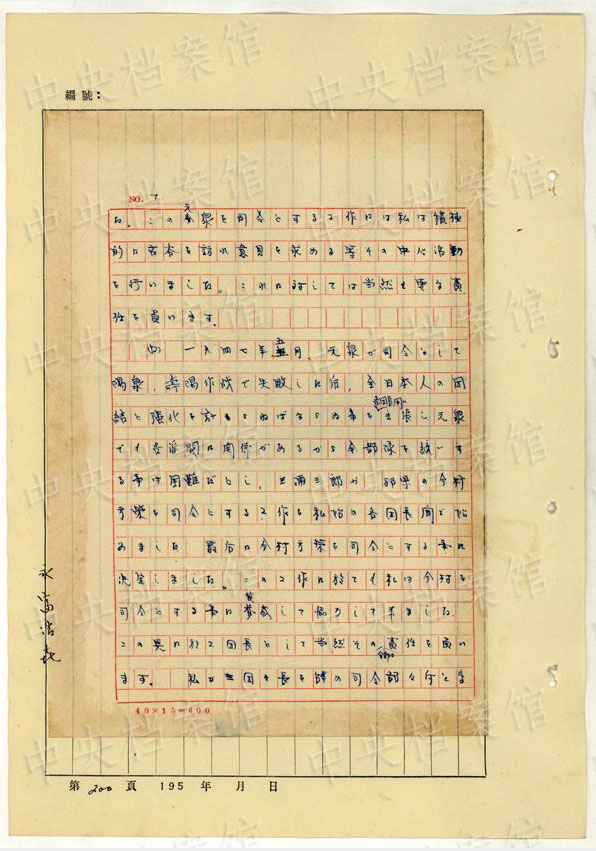 編號：
NO. 7
た。この元泉を司令とする工作には私は積極
的に各本を訪れ意見を求める等その中心活動
を行いました。これに対しては当然主要な責
任を負います。
(四) 一九四七年五月、元泉が司令として
陽泉、寿陽作戦で失敗した后、全日本人の団
結と強化を計らねばならぬ事を主張し元泉
でも各派閥に関係があるから全部隊を統一す
る事は困難だとし、三浦三郎が、の今村
方策を司令とする工作を私他の各団長間で始
めました 最后に今村方策を司令とする事に
決定しました。この工作に於ても私は今村を
司令とする事に賛成して協力して来ました。
この点に於て団長として当然その責任を負い
ます。 私は三団々長を辞め司令部々付とな
40×15=600
永富浩喜
第 200 頁 195 年 月 日
中央档案馆